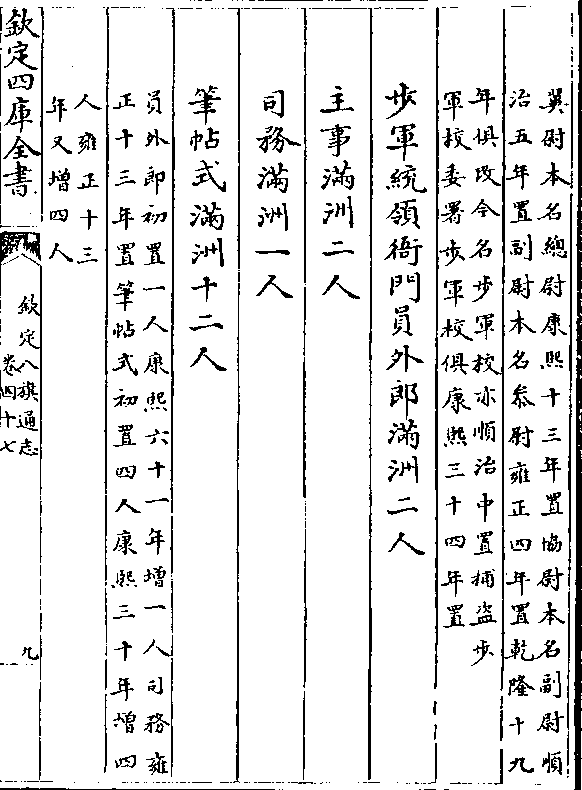 翼尉本名總尉康熙十三年置協尉本名副尉順
治五年置副尉本名叅尉雍正四年置乾隆十九
年俱改今名步軍校亦順治中置捕盗步
軍校委署步軍校俱康熙三十四年置
步軍統領衙門員外郎滿洲二人
主事滿洲二人
司務滿洲一人
筆帖式滿洲十二人
員外郎初置一人康熙六十一年增一人司務雍
正十三年置筆帖式初置四人康熙三十年增四
人雍正十三
年又增四人
欽定四庫全書
欽定八旗通志
卷四十七
九